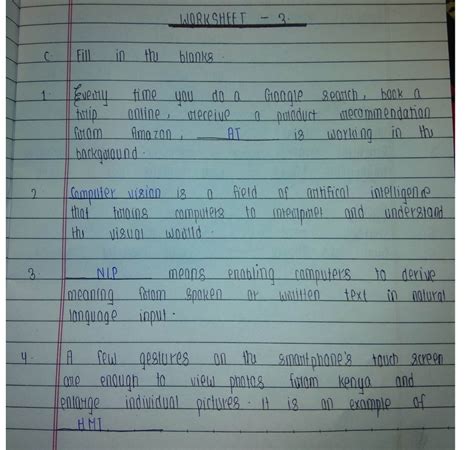 WORKSHEET - 3.
C. Fill in the blanks.
1. Everity time you do a Google search, book a
trip online, receive a product recommendation
from Amazon, AI is working in the
background.
2. Computer vision is a field of artifical intelligence
that trains computers to interpret and understand
the visual world.
3. NLP means enabling computers to derive
meaning from spoken or written text in natural
language input.
4. A few gestures on the smartphone's touch screen
are enough to view photos from Kenya and
enlarge individual pictures. It is an example of
HMI.